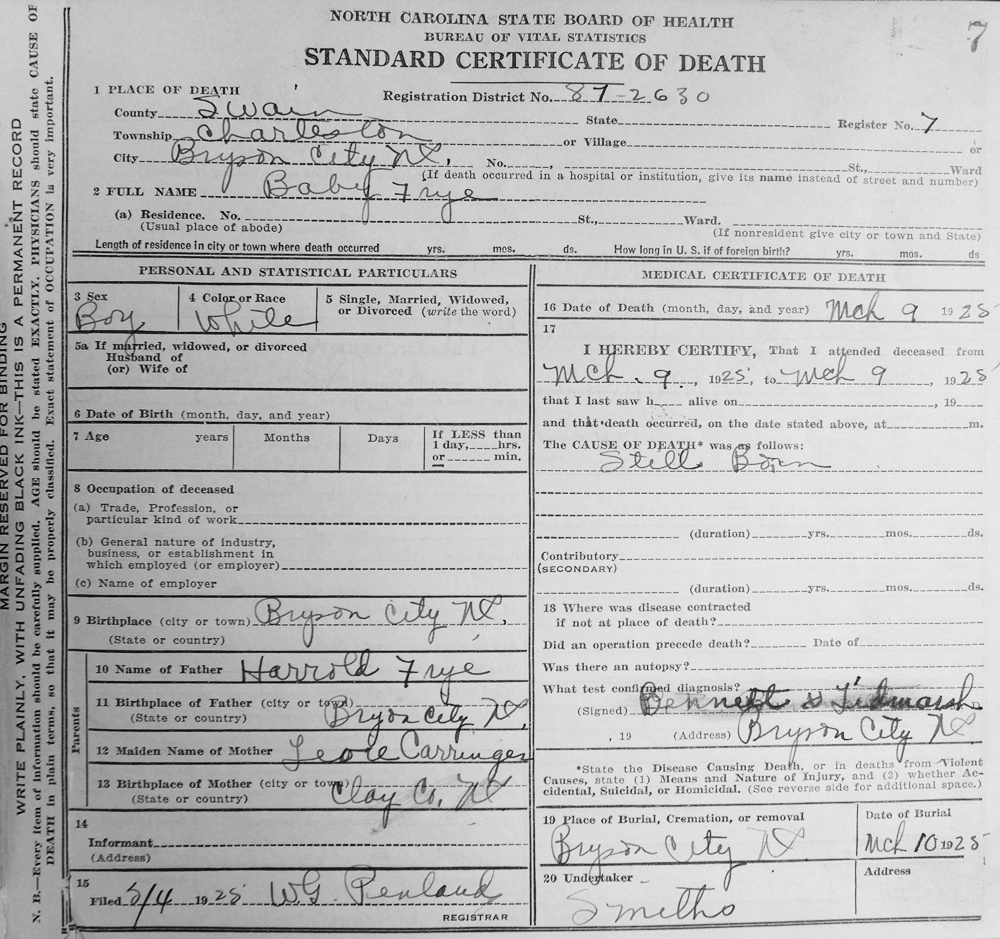 NORTH CAROLINA STATE BOARD OF HEALTH
BUREAU OF VITAL STATISTICS
STANDARD CERTIFICATE OF DEATH
7
1 PLACE OF DEATH
Registration District No. 87-2630
County Swain State Register No. 7
Township Charleston or Village or
City Bryson City NC, No. St., Ward
(If death occurred in a hospital or institution, give its name instead of street and number)
2 FULL NAME Baby Frye
(a) Residence. No. St., Ward.
(Usual place of abode) (If nonresident give city or town and State)
Length of residence in city or town where death occurred yrs. mos. ds. How long in U. S. if of foreign birth? yrs. mos. ds
PERSONAL AND STATISTICAL PARTICULARS
3 Sex Boy
4 Color or Race White
5 Single, Married, Widowed, or Divorced (write the word)
5a If married, widowed, or divorced
Husband of
(or) Wife of
6 Date of Birth (month, day, and year)
7 Age years Months Days If LESS than 1 day, hrs. or min.
8 Occupation of deceased
(a) Trade, Profession, or
particular kind of work
(b) General nature of industry,
business, or establishment in
which employed (or employer)
(c) Name of employer
9 Birthplace (city or town) Bryson City NC,
(State or country)
Parents
10 Name of Father Harrold Frye
11 Birthplace of Father (city or town) Bryson City NC,
(State or country)
12 Maiden Name of Mother Carringer
13 Birthplace of Mother (city or town) Clay Co. NC
(State or country)
14
Informant
(Address)
15
Filed 5/4 1925 W.G. Penland
REGISTRAR
MEDICAL CERTIFICATE OF DEATH
16 Date of Death (month, day, and year) Mch 9 1925
17
I HEREBY CERTIFY, That I attended deceased from
Mch. 9, 1925, to Mch 9, 1925
that I last saw h alive on , 19
and that death occurred, on the date stated above, at m.
The CAUSE OF DEATH* was as follows:
Still Born
(duration) yrs. mos. ds.
Contributory
(SECONDARY)
(duration) yrs. mos. ds.
18 Where was disease contracted
if not at place of death?
Did an operation precede death? Date of
Was there an autopsy?
What test confirmed diagnosis?
(Signed) Bennett & Tidmarsh
, 19 (Address) Bryson City NC.
*State the Disease Causing Death, or in deaths from Violent
Causes, state (1) Means and Nature of Injury, and (2) whether Ac-
cidental, Suicidal, or Homicidal. (See reverse side for additional space.)
19 Place of Burial, Cremation, or removal
Bryson City NC
Date of Burial
Mch 10 1925
20 Undertaker
Smiths
Address
MARGIN RESERVED FOR BINDING
WRITE PLAINLY, WITH UNFADING BLACK INK—THIS IS A PERMANENT RECORD
N. B.—Every item of information should be carefully supplied. AGE should be stated EXACTLY. PHYSICIANS should state CAUSE OF
DEATH in plain terms, so that it may be properly classified. Exact statement of OCCUPATION is very important.